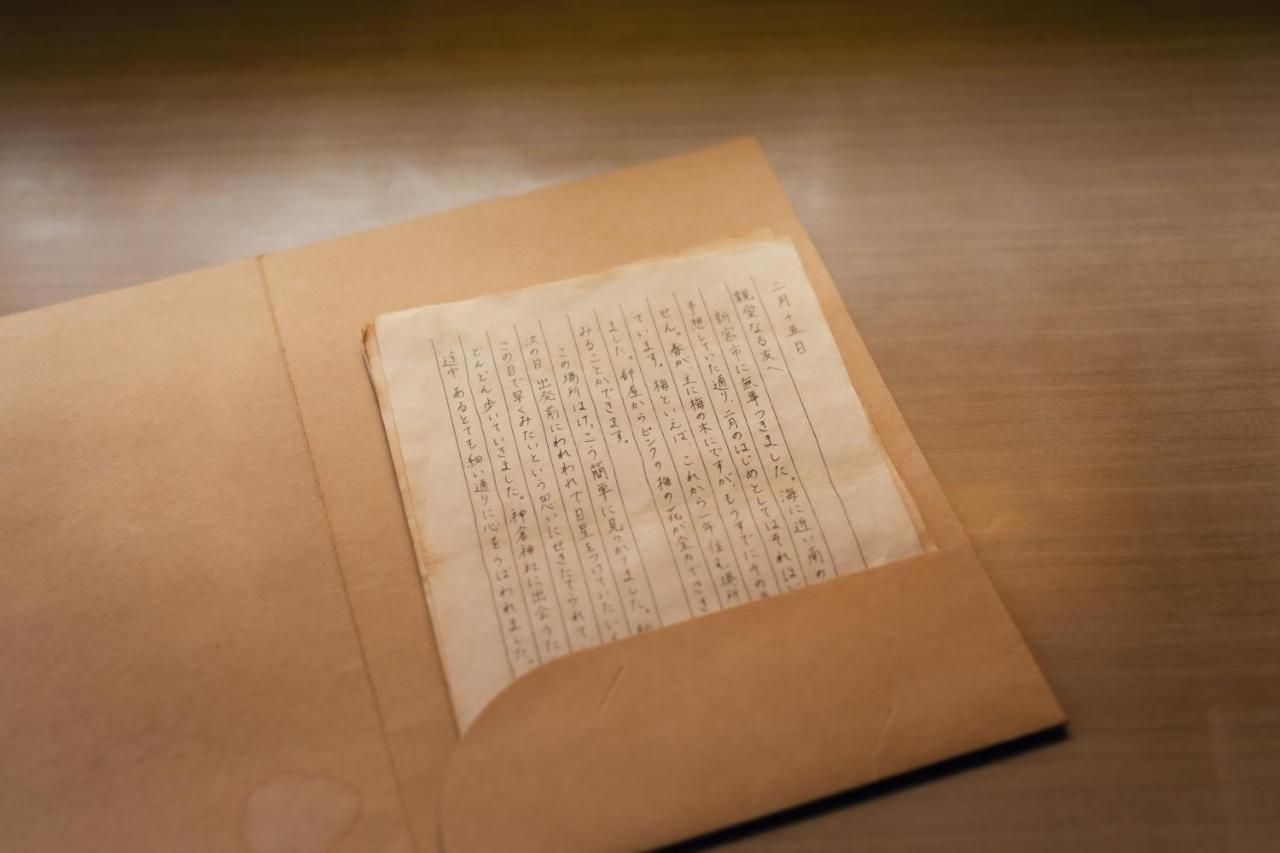 二月十五日
親愛なる友へ
新宮市に無事つきました。海に近い南の
予想していた通り、二月のはじめとしてはそれほど
せん。春が、主に梅の木にですが、もうすでにその
ています。梅といえば、これから一年住む場所
ました。部屋からピンクの梅の花が全力でさき
みることができます。
この場所はけっこう簡単に見つかりました。
次の日 出発前にわれわれで目星をつけていたいく
この目で早くみたいという思いにせきたてられて、
どんどん歩いていきました。神倉神社に出会うた
途中 あるとても細い通りに心をうばわれました。